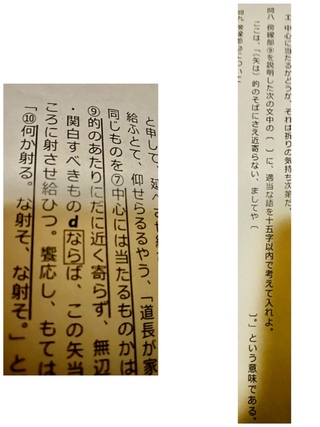 エ 中心に当たるかどうか、それは祈りの気持ち次第だ。
問八 傍線部⑨を説明した次の文中の（ ）に、適当な語を十五字以内で考えて入れよ。
ここは、「（矢は）的のそばにさえ近寄らない、ましてや（ ）。」という意味である。
給ふとて、仰せらるるやう、「道長が家
同じものを⑦中心には当たるものかは
⑨的のあたりにだに近く寄らず、無辺
・関白すべきものdならば、この矢当
ころに射させ給ひつ。饗応し、もては
「⑩何か射る。な射そ、な射そ。」と